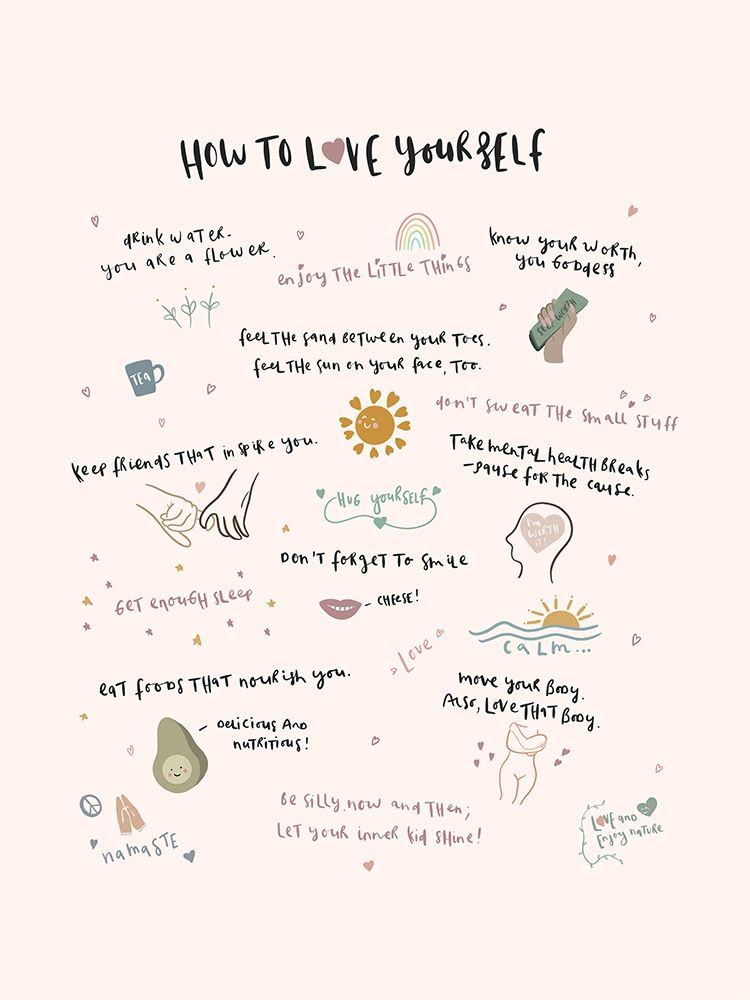 HOW TO LOVE YOURSELF
drink WATER-
you are a flower.
enjoy THE LITTLE THINGS
know your worth,
you GODDESS
SELF WORTH
feel THE sand BETWEEN your TOES.
feel THE sun on your face, TOO.
TEA
don't sweat THE small STUFF
keep friends THAT inspire you.
Take mental healTH Breaks
-pause for THE cause.
HUG yourself
I'm
WORTH
IT!
DON'T forget To smile
GET enough sleep
- CHEESE!
CALM...
Love
eat foods THAT nourish you.
move your Body.
Also, Love THAT Body.
- Delicious And
nutritious!
Be silly now and Then;
LET your inner kid shine!
namaste
LOVE and
Enjoy nature